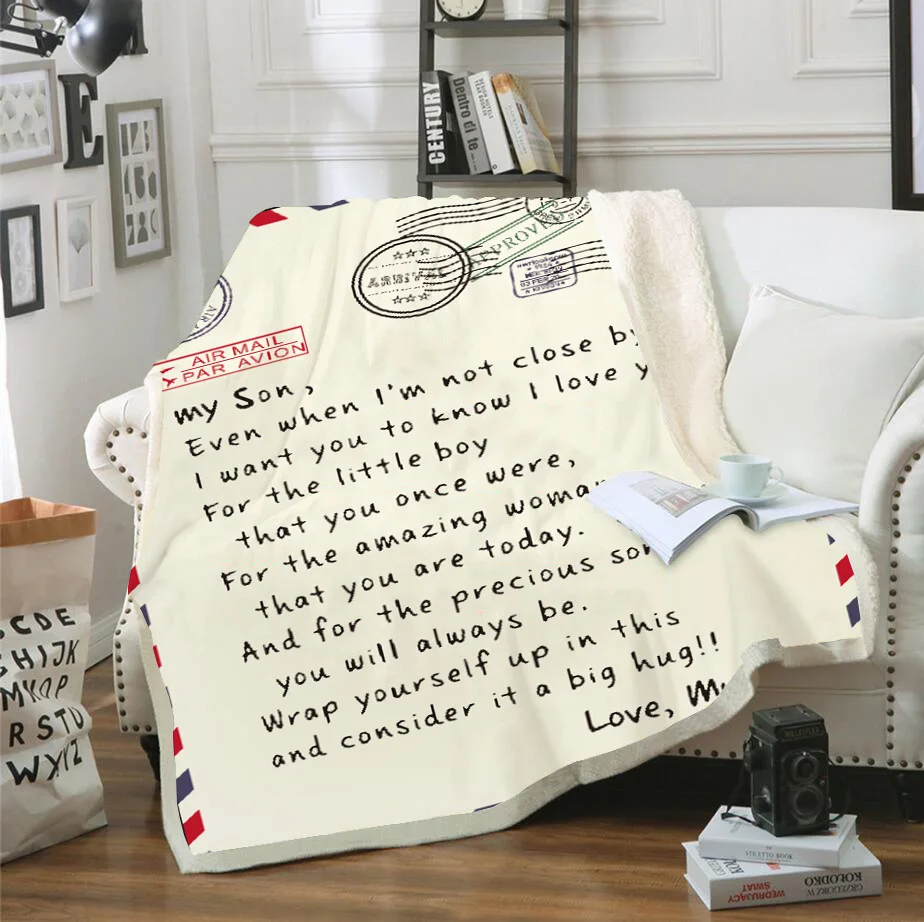 CENTURY
Dentro di te
DESIGN HOTELS
YEAR BOOK 09
E
APPROVED
ARRIVAL
03 FEB
AIR MAIL
PAR AVION
my Son,
Even when I'm not close by
I want you to know I love y
For the little boy
that you once were,
For the amazing woman
that you are today.
And for the precious son
you will always be.
Wrap yourself up in this
and consider it a big hug!!
Love, M
CDE
GHIJK
MNOP
RSTU
WXYZ
STILETTO BOOK
GRZEGORZ W
KOŁODKO
WĘDRUJĄCY
ŚWIAT